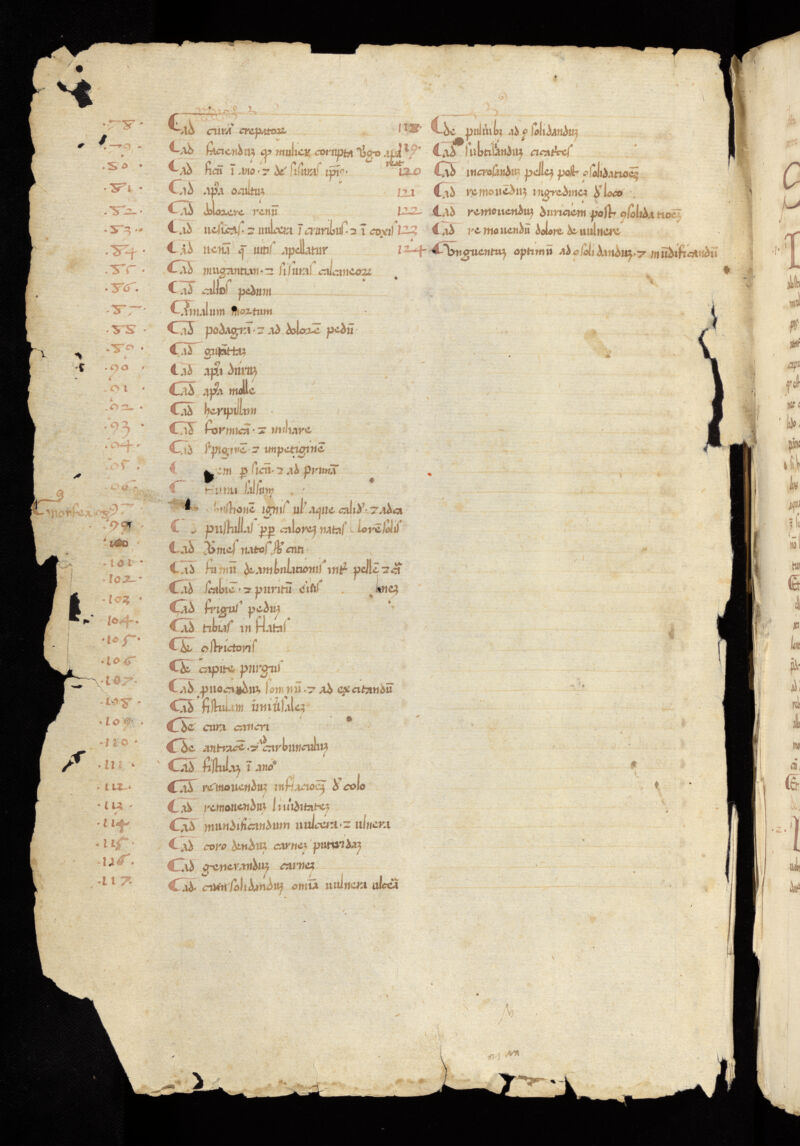 ·78· Ad curā crepatore
·79· Ad faciendū q̄ mulier corrupta v̄go apā
reat
·80· Ad ficū ī ano · ⁊ de fisuras ip̄i·
·81· Ad apa ocultū
·82· Ad dolorere renū
·83· Ad uesicas · ⁊ uulcera ī cruribus · ⁊ ī coxis
·84· Ad uenā q̄ uitis apellatur
·85· Ad mugantian · ⁊ fisuras calcaneore
·86· Ad callos pedum
·87· Ad malum mortum
·88· Ad podagrā · ⁊ ad dolorē pedū
·89· Ad guttaz
·90· Ad apā durū
·91· Ad apā mollē
·92· Ad heripillam
·93· Ad formicā · ⁊ miliare
·94· Ad s̄piginē ⁊ impetiginē
·95· ꝑ sicū · ⁊ ad primā
·96· salsum
97 ustionē ignis ul' aque calid' · ⁊ adca
99 pustillas ꝓp calorez natas lorē solis
100 Ad v̄mes natos sb cuti
·101· Ad fumū deambulationis int̄ pellē ⁊ cā
nez
·102· Ad scabiē · ⁊ puritū
·103· Ad frigus peduz
·104· Ad tibias inflatas
·105· de ꝯstrictoris
·106· de capite purgiis
·107· Ad ꝓuocanduz somnū · ⁊ ad excitandū
·108· Ad fistulam uniūsalez
·109· de cura cancri
·110· de antrace · ⁊ carbunculuz
·111· Ad fistulaz ī ano
·112· Ad remouenduz inflacioēz d' colo
·113· Ad remouenduz liuiditatez
·114· Ad mundificandum uulcera · ⁊ ulnera
·115· Ad corodenduz carnez putridaz
·116· Ad generanduz carnez
·117· Ad consolidanduz omīa uulnera ulcēa
118 de puluib; ad ꝯsolidanduz
119 Ad subtilianduz cicatces
120 Ad incrosanduz pellez post ꝯsolidatioēz
121 Ad remouēduz ingredinez d' loco
122 Ad remouenduz duriciem post ꝯsolidatioēz
123 Ad remouendū dolore de uulnere
124 Vnguentuz optimū ad ꝯsolidanduz · ⁊ mūdificandū